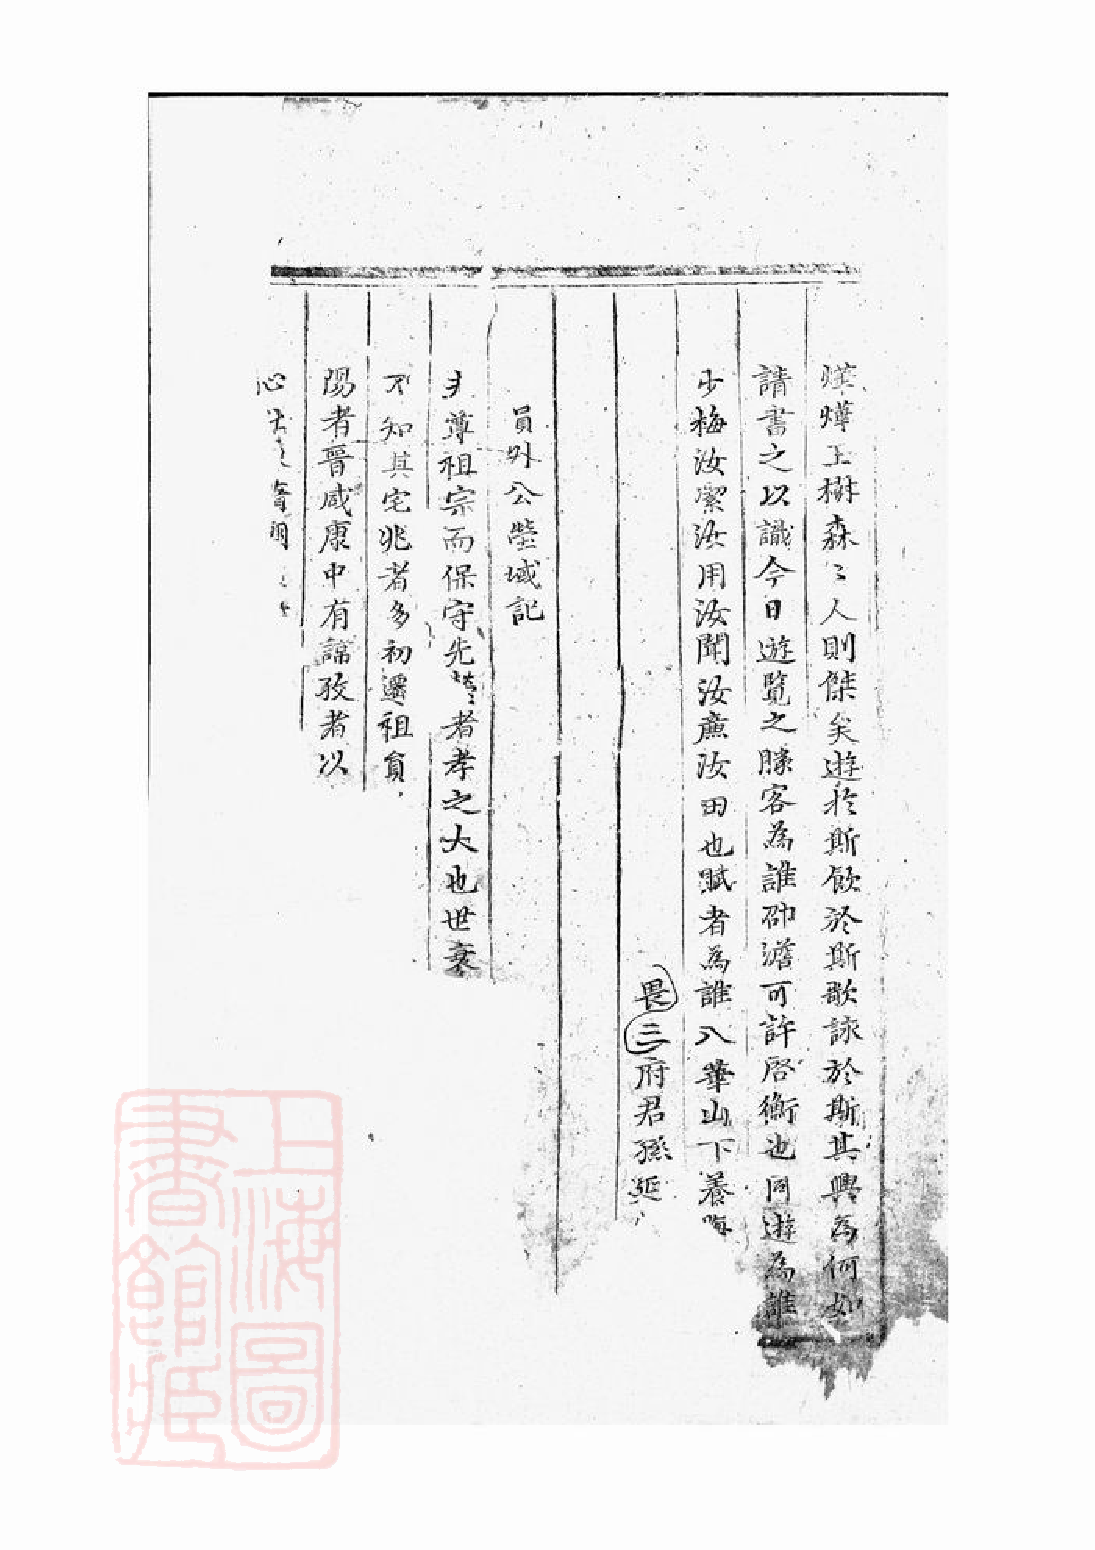 燁燁玉樹森〻人則傑矣遊於斯飲於斯歌詠於斯其興為何如
請書之以識今日遊覽之勝客為誰邵澹可許啓衡也同遊為誰
少梅汝潔汝用汝聞汝薦汝田也賦者為誰八華山下養晦
畏三府君孫延
員外公塋域記
尊祖宗而保守先者孝之大也世衰
不知其宅兆者多初遷祖
陽者晉咸康中有諱孜者以
心
上海圖書館藏